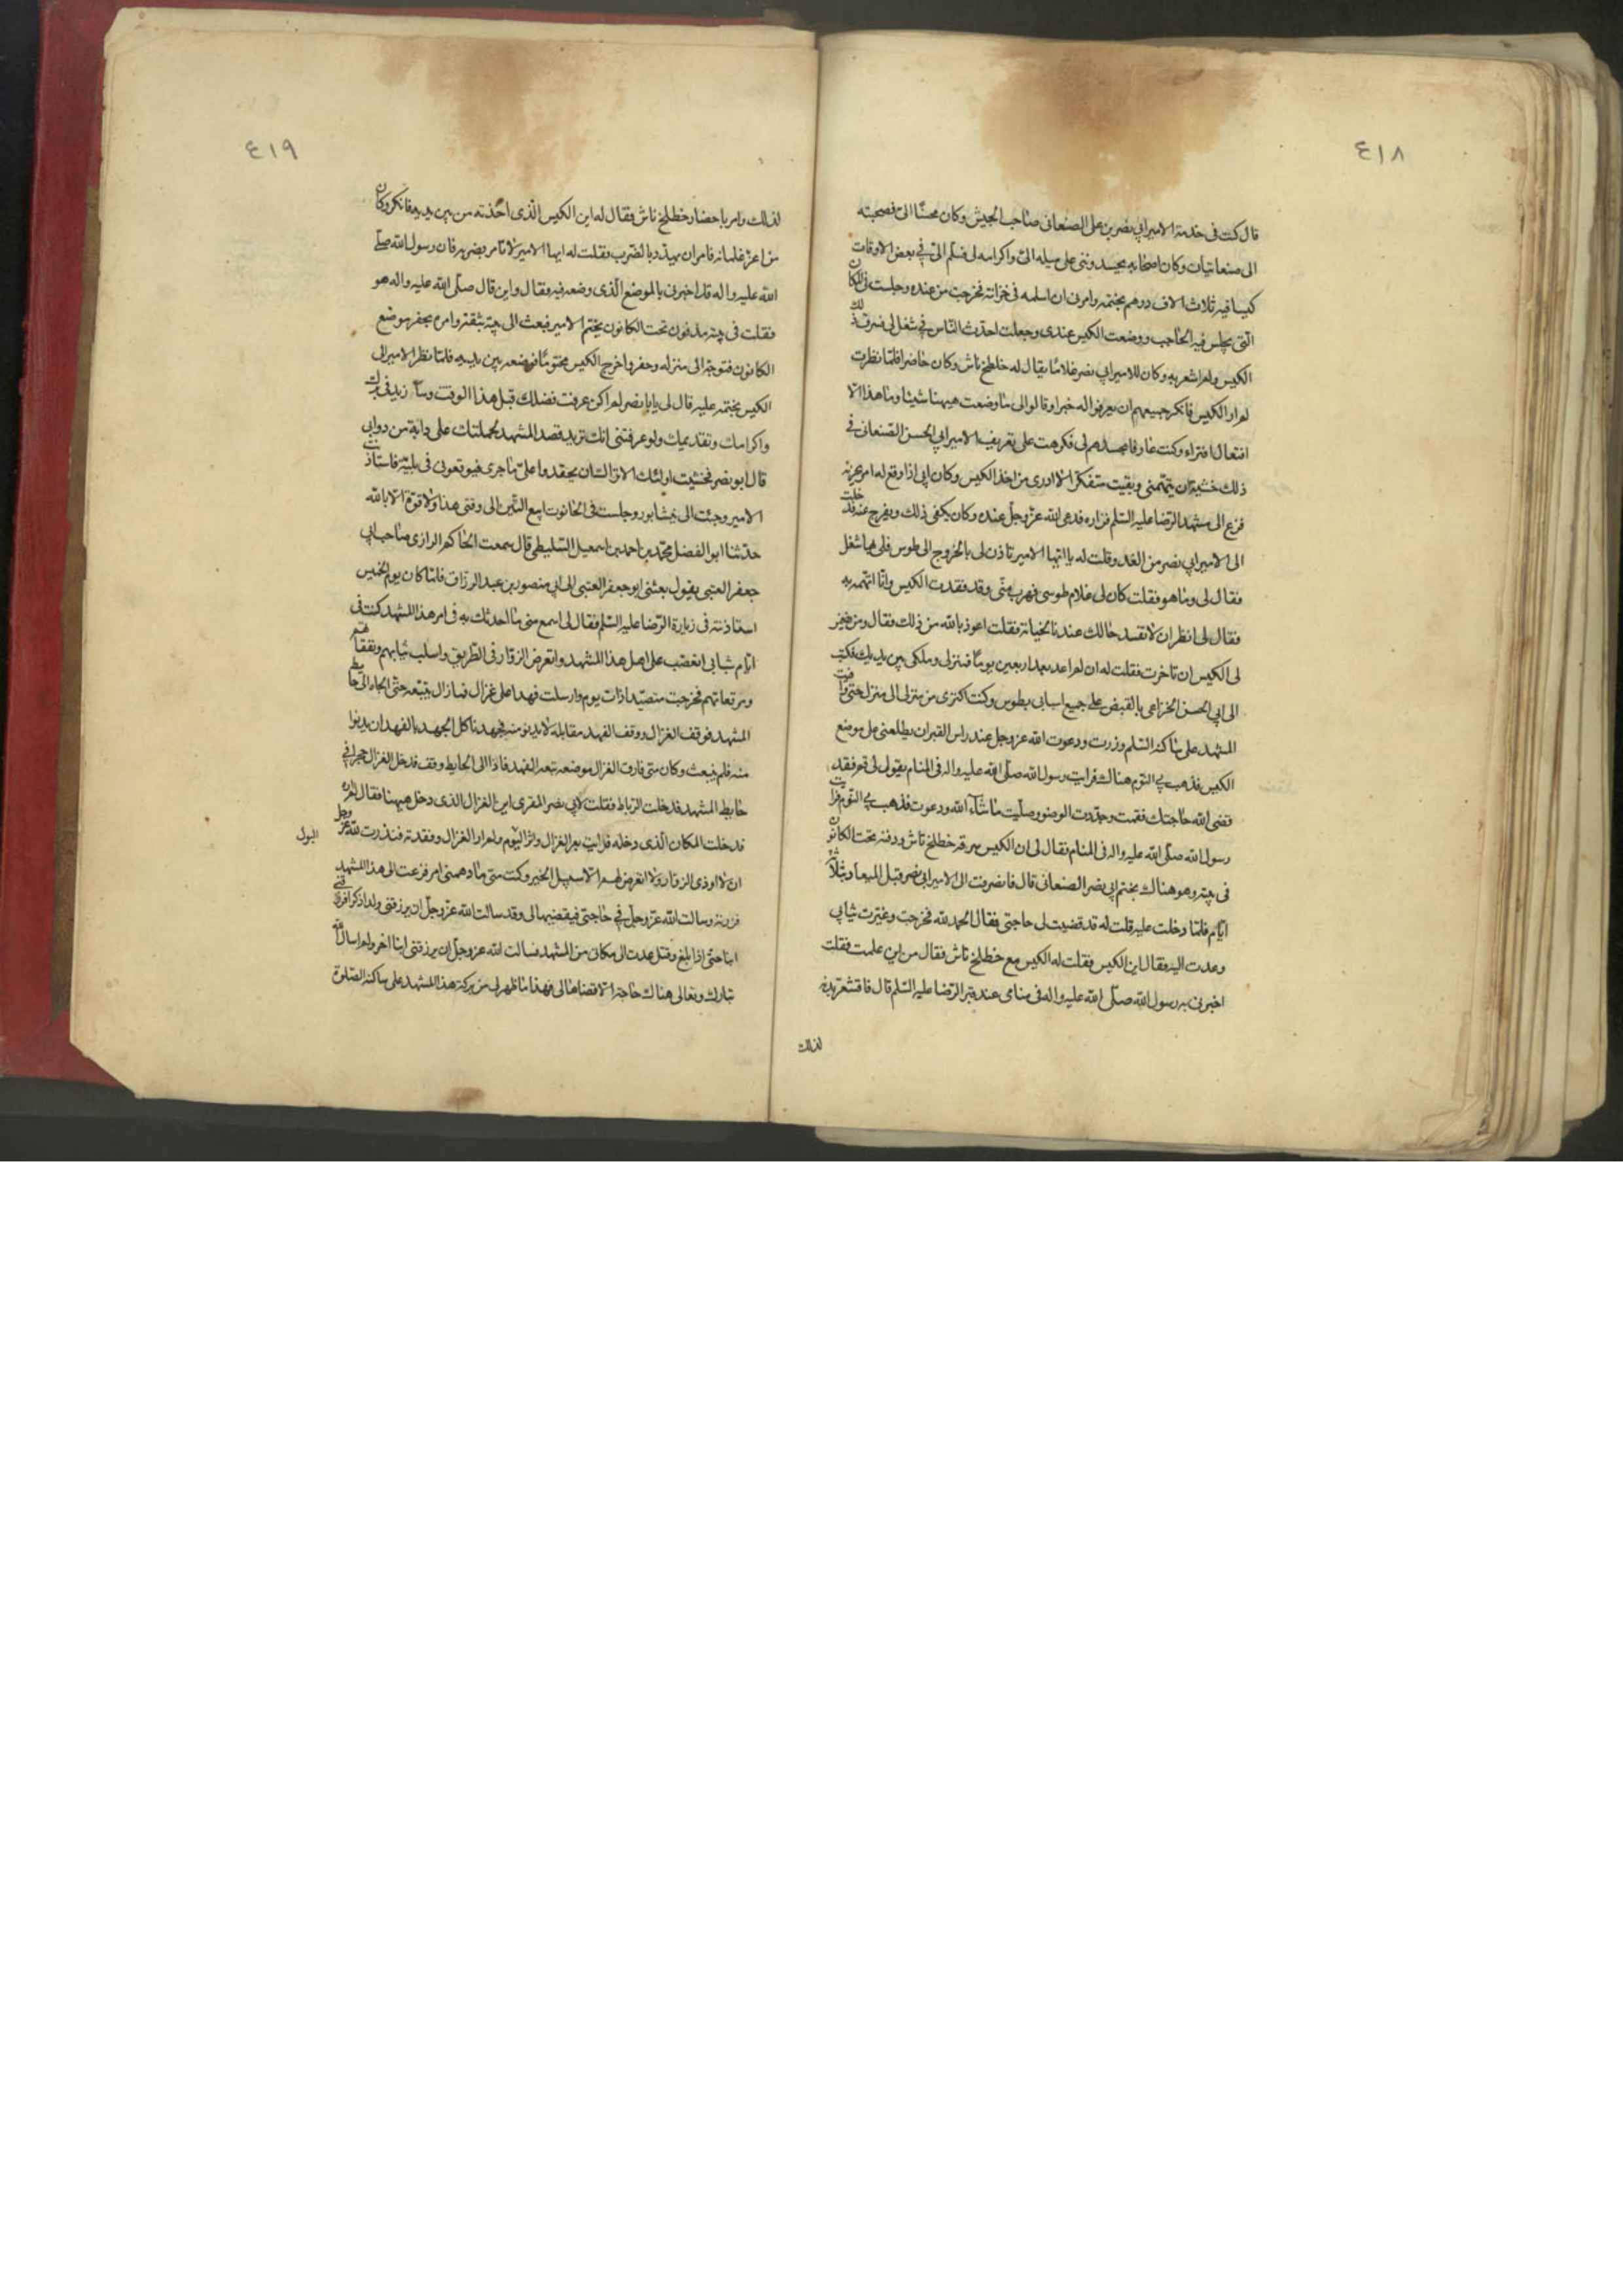 ٤١٨
قال كنت فى خدمة الامير ابي نصر بن على الصنعانى صاحب الجيش وكان محسنا الىّ فصحبته
الى صنعانيان وكان اصحابه يحسدوننى على ميله الىّ واكرامه لى فسلم الىّ في بعض الاوقات
كيسا فيه ثلاث الاف درهم بختمه وامرنى ان اسلمه فى خزانته فخرجت من عنده وجلست فى المكان
الّتى يجلس فيه الحاجب ووضعت الكيس عندى وجعلت احدّث النّاس في شغل لى فسرق ذلك
الكيس ولم اشعر به وكان للامير ابي نصر غلاما يقال له خطلخ تاش وكان حاضرا فلمّا نظرت
لم ار الكيس فانكر جميعهم ان يعرفوا له خبرا وقالوا لى ما وضعت هيهنا شيئا وما هذا الّا
افتعال افتراء وكنت عارفا بحسدهم لى فكرهت على تعريف الامير ابي الحسن الصنعانى في
ذلك خشية ان يتهمنى وبقيت متفكرا لا ادرى من اخذ الكيس وكان ابي اذا وقع له امر يحزنه
فزع الى مشهد الرّضا عليه السّلم فزاره فدعى الله عزّ وجلّ عنده وكان يكفى ذلك ويفرج عنه فدخلت
الى الامير ابي نصر من الغد وقلت له يا ايّها الامير تاذن لى بالخروج الى طوس فلى بها شغل
فقال لى وما هو فقلت كان لى غلام طوسى فهرب منّى وقد فقدت الكيس وانا اتّهمه به
فقال لى انظر ان لا تفسد حالك عندنا بخيانة فقلت اعوذ بالله من ذلك فقال ومن يضمن
لى الكيس ان تاخرت فقلت له ان لم اعد بعد اربعين يوما فمنزلى وملكى بين يديك فكتب
الى ابي الحسن الخزاعى بالقبض على جميع اسبابى بطوس وكنت اكترى من منزل الى منزل حتى وافيت
المشهد على ساكنه السّلم وزرت ودعوت الله عزّ وجلّ عند راس القبر ان يطلعنى على موضع
الكيس فذهب بي النّوم هناك فرايت رسول الله صلّى الله عليه واله فى المنام يقول لى قم فقد
قضى الله حاجتك فقمت وجدّدت الوضوء وصلّيت ما شآء الله ودعوت فذهب بي النّوم فرايت
رسول الله صلّى الله عليه واله فى المنام فقال لى ان الكيس سرقه خطلخ تاش ودفنه تحت الكانون
فى بيته وهو هناك بختم ابي نصر الصنعانى قال فانصرفت الى الامير ابي نصر قبل الميعاد بثلاثة
ايّام فلمّا دخلت عليه قلت له قد قضيت لى حاجتى فقال الحمد لله فخرجت وغيّرت ثيابى
وعدت اليه فقال اين الكيس فقلت له الكيس مع خطلخ تاش فقال من اين علمت فقلت
اخبرنى به رسول الله صلّى الله عليه واله فى منامى عند قبر الرّضا عليه السّلم قال فاقشعر بدنه
لذلك
٤١٩
لذلك وامر باحضار خطلخ تاش فقال له اين الكيس الّذى اخذته من بين يديه فانكر وكان
من اعزّ غلمانه فامر ان يهدّد بالضرب فقلت له ايها الامير لا تامر بضربه فان رسول الله صلّى
الله عليه واله قد اخبرنى بالموضع الّذى وضعه فيه فقال واين قال صلّى الله عليه واله هو
فقلت فى بيته مدفون تحت الكانون بختم الامير فبعث الى بيته بثقة وامره بحفر موضع
الكانون فتوجّه الى منزله وحفر واخرج الكيس مختوما فوضعه بين يديه فلمّا نظر الامير الى
الكيس بختمه عليه قال لى يا ابا نصر لم اكن عرفت فضلك قبل هذا الوقت وسأزيد فى برّك
واكرامك وتقديمك ولو عرفتنى انك تريد قصد المشهد لحملتك على دابة من دوابى
قال ابو نصر فخشيت اولئك الاتراك ان يحقدوا علىّ ما جرى فيوقعونى فى بليّة فاستاذنت
الامير وجئت الى نيشابور وجلست فى الحانوت ابيع التّبن الى وقتى هذا ولا قوّة الّا بالله
حدّثنا ابو الفضل محمّد بن احمد بن اسمعيل السّليطى قال سمعت الحاكم الرازى صاحب ابي
جعفر العتبى يقول بعثنى ابو جعفر العتبى الى ابي منصور بن عبد الرزاق فلمّا كان يوم الخميس
استاذنته فى زيارة الرّضا عليه السّلم فقال لى اسمع منى ما احدثك به فى امر هذا المشهد كنت فى
ايّام شبابى اتعصّب على اهل هذا المشهد واتعرض الزوّار فى الطريق واسلب ثيابهم ونفقاتهم
ومرقعاتهم فخرجت متصيّدا ذات يوم وارسلت فهدا على غزال فما زال يتبعه حتّى الجاه الى حايط
المشهد فوقف الغزال ووقف الفهد مقابله لا يدنو منه فجهدنا كل الجهد بالفهد ان يدنوا
منه فلم ينبعث وكان متى فارق الغزال موضعه تبعه الفهد فاذا الى الحايط وقف فدخل الغزال حجرا فى
حايط المشهد فدخلت الرّباط فقلت لابى نصر المقرى اين الغزال الذى دخل هيهنا فقال لم اره
فدخلت المكان الّذى دخله فرايت بعر الغزال واثر البول ولم ار الغزال وفقدته فنذرت لله عزّ وجل
البول
ان لا اوذى الزوّار ولا اتعرض لهم الّا سبيل الخير وكنت متى ما دهمنى امر فزعت الى هذا المشهد
فزرته وسالت الله عزّ وجلّ في حاجتى فيقضيها لى وقد سالت الله عزّ وجلّ ان يرزقنى ولدا ذكرا فرزقنى
ابنا حتّى اذا بلغ وقتل عدت الى مكانى من المشهد فسالت الله عزّ وجلّ ان يرزقنى ابنا اخر ولم اسال الله
تبارك وتعالى هناك حاجة الّا قضاها لى فهذا ما ظهر لى من بركة هذا المشهد على ساكنه الصّلوة